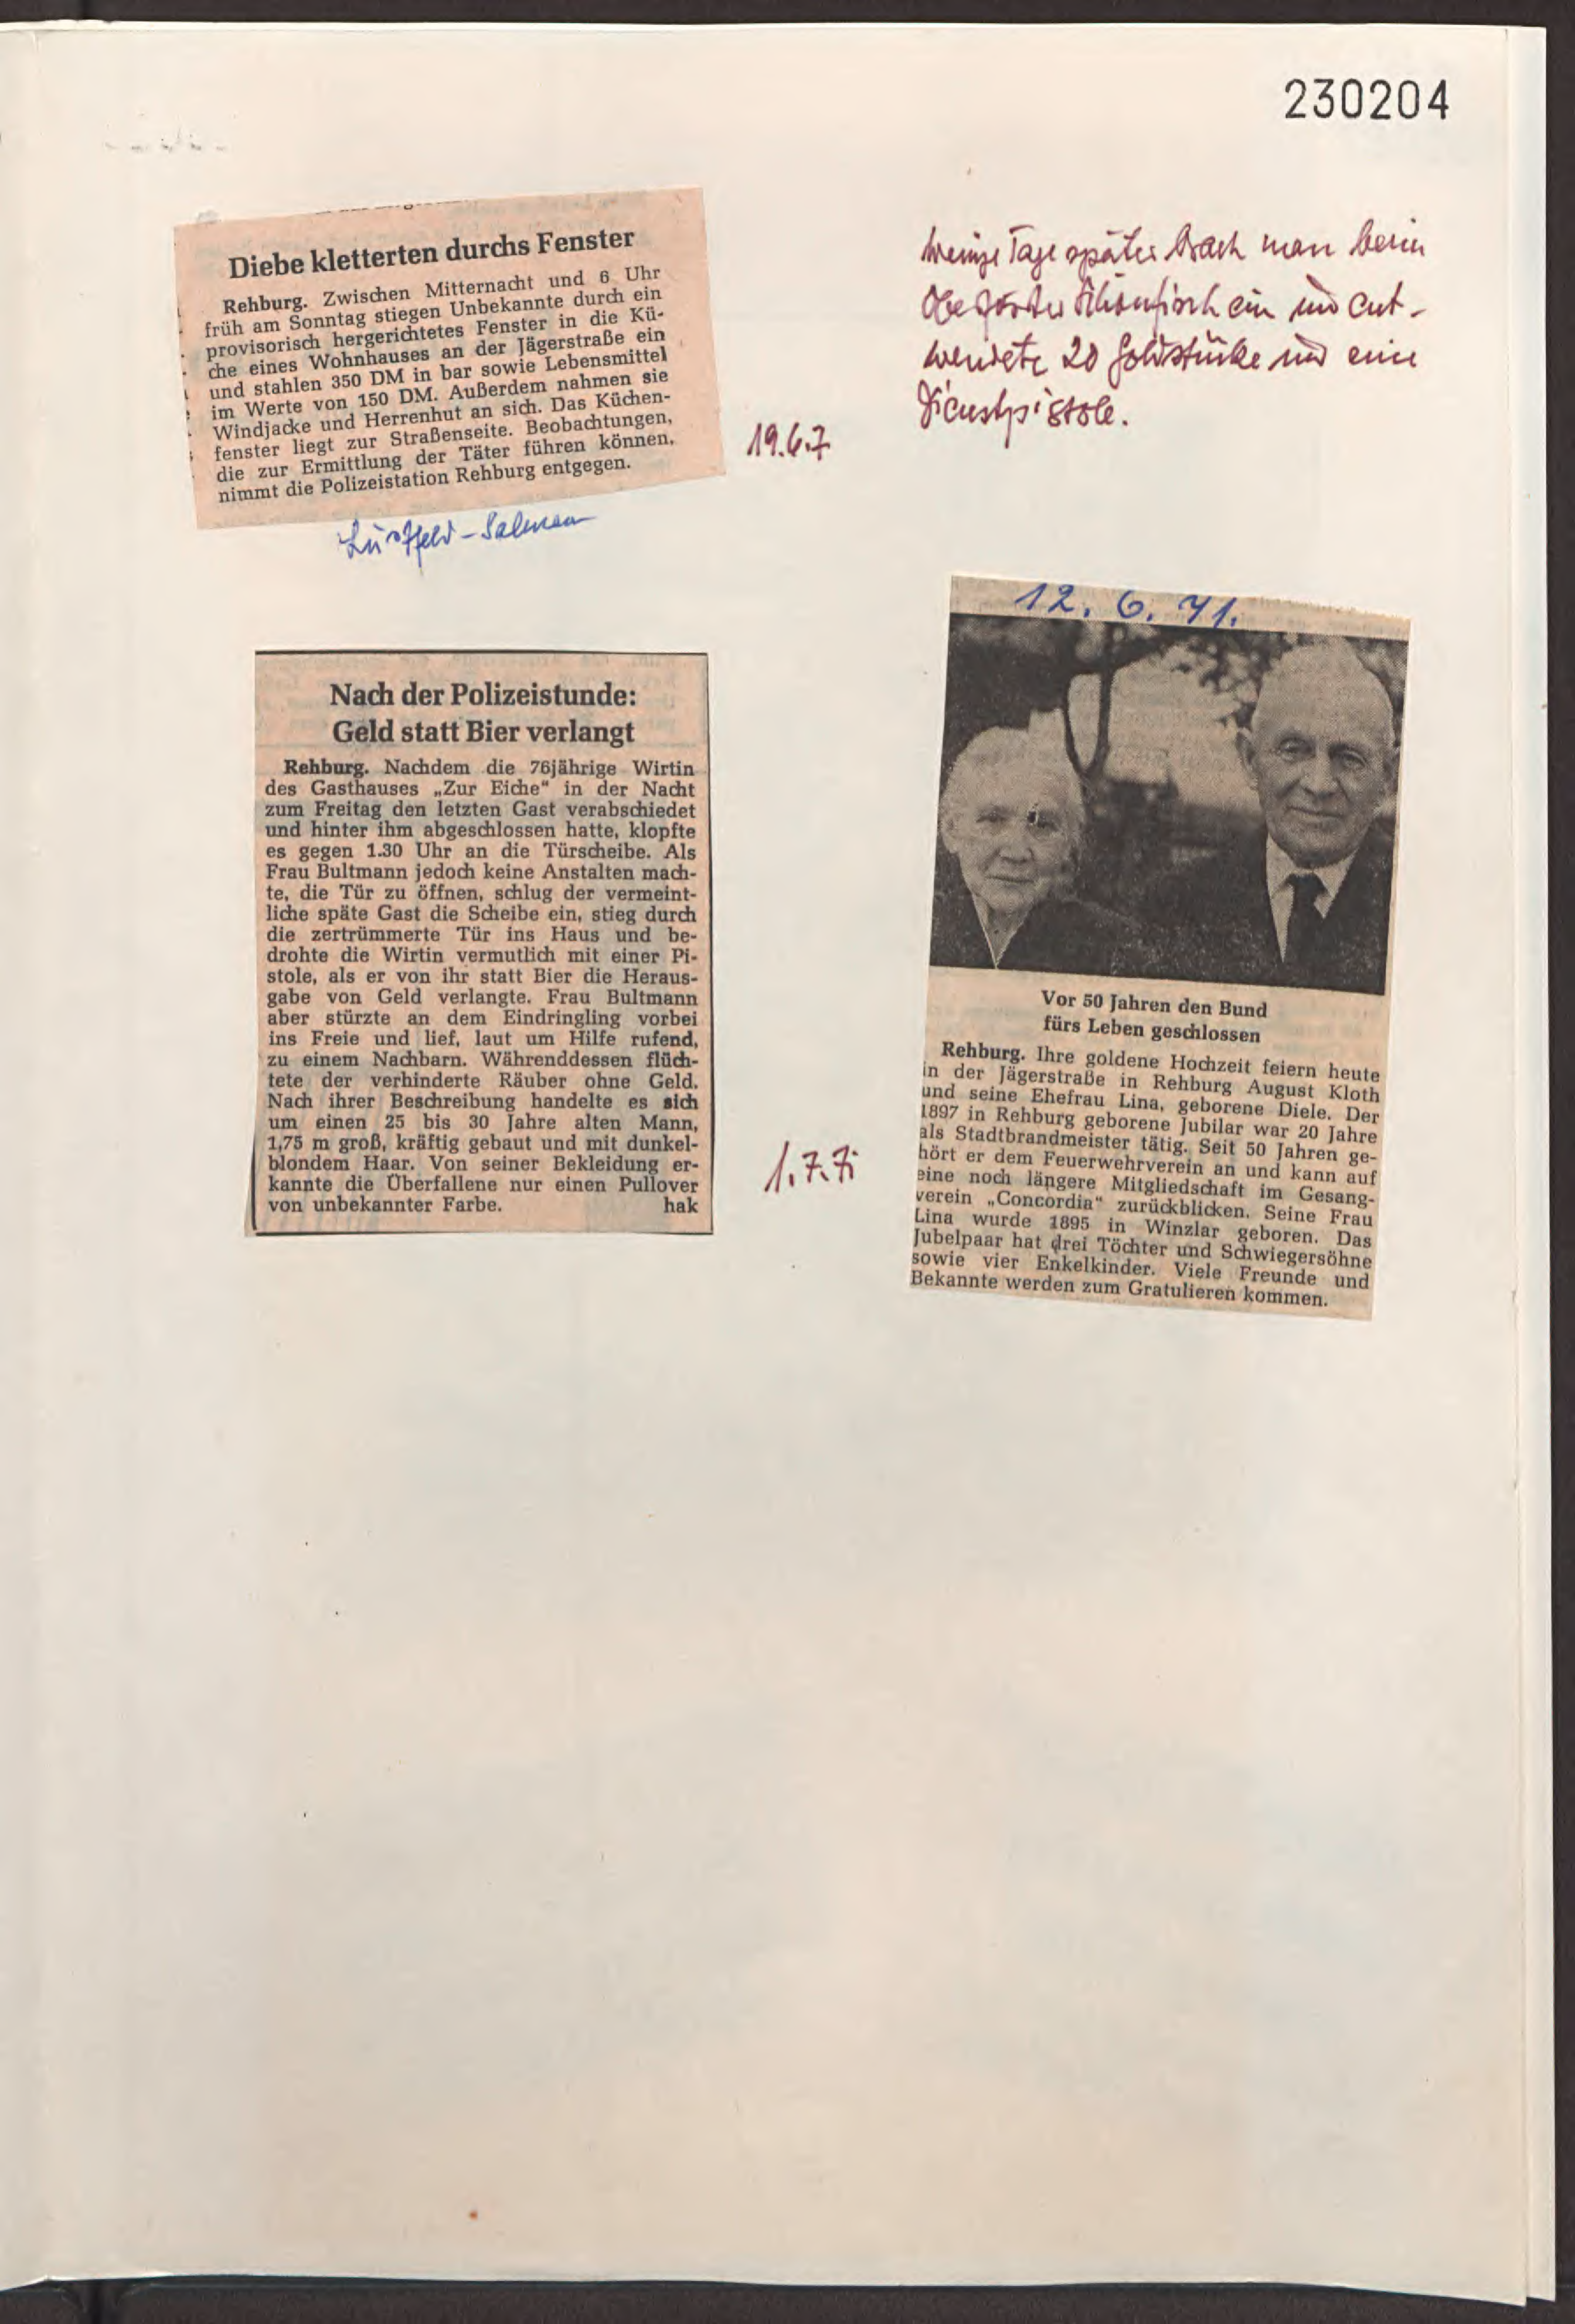 230204
Diebe kletterten durchs Fenster
Rehburg. Zwischen Mitternacht und 6 Uhr
früh am Sonntag stiegen Unbekannte durch ein
provisorisch hergerichtetes Fenster in die Kü-
che eines Wohnhauses an der Jägerstraße ein
und stahlen 350 DM in bar sowie Lebensmittel
im Werte von 150 DM. Außerdem nahmen sie
Windjacke und Herrenhut an sich. Das Küchen-
fenster liegt zur Straßenseite. Beobachtungen,
die zur Ermittlung der Täter führen können,
nimmt die Polizeistation Rehburg entgegen.
19.6.7
Wenige Tage später brach man beim
Oberförster ein und ent-
wendete 20 Goldstücke und eine
Dienstpistole.
Nach der Polizeistunde:
Geld statt Bier verlangt
Rehburg. Nachdem die 76jährige Wirtin
des Gasthauses „Zur Eiche“ in der Nacht
zum Freitag den letzten Gast verabschiedet
und hinter ihm abgeschlossen hatte, klopfte
es gegen 1.30 Uhr an die Türscheibe. Als
Frau Bultmann jedoch keine Anstalten mach-
te, die Tür zu öffnen, schlug der vermeint-
liche späte Gast die Scheibe ein, stieg durch
die zertrümmerte Tür ins Haus und be-
drohte die Wirtin vermutlich mit einer Pi-
stole, als er von ihr statt Bier die Heraus-
gabe von Geld verlangte. Frau Bultmann
aber stürzte an dem Eindringling vorbei
ins Freie und lief, laut um Hilfe rufend,
zu einem Nachbarn. Währenddessen flüch-
tete der verhinderte Räuber ohne Geld.
Nach ihrer Beschreibung handelte es sich
um einen 25 bis 30 Jahre alten Mann,
1,75 m groß, kräftig gebaut und mit dunkel-
blondem Haar. Von seiner Bekleidung er-
kannte die Überfallene nur einen Pullover
von unbekannter Farbe. hak
1.7.71
12. 6. 71.
Vor 50 Jahren den Bund
fürs Leben geschlossen
Rehburg. Ihre goldene Hochzeit feiern heute
in der Jägerstraße in Rehburg August Kloth
und seine Ehefrau Lina, geborene Diele. Der
1897 in Rehburg geborene Jubilar war 20 Jahre
als Stadtbrandmeister tätig. Seit 50 Jahren ge-
hört er dem Feuerwehrverein an und kann auf
eine noch längere Mitgliedschaft im Gesang-
verein „Concordia“ zurückblicken. Seine Frau
Lina wurde 1895 in Winzlar geboren. Das
Jubelpaar hat drei Töchter und Schwiegersöhne
sowie vier Enkelkinder. Viele Freunde und
Bekannte werden zum Gratulieren kommen.